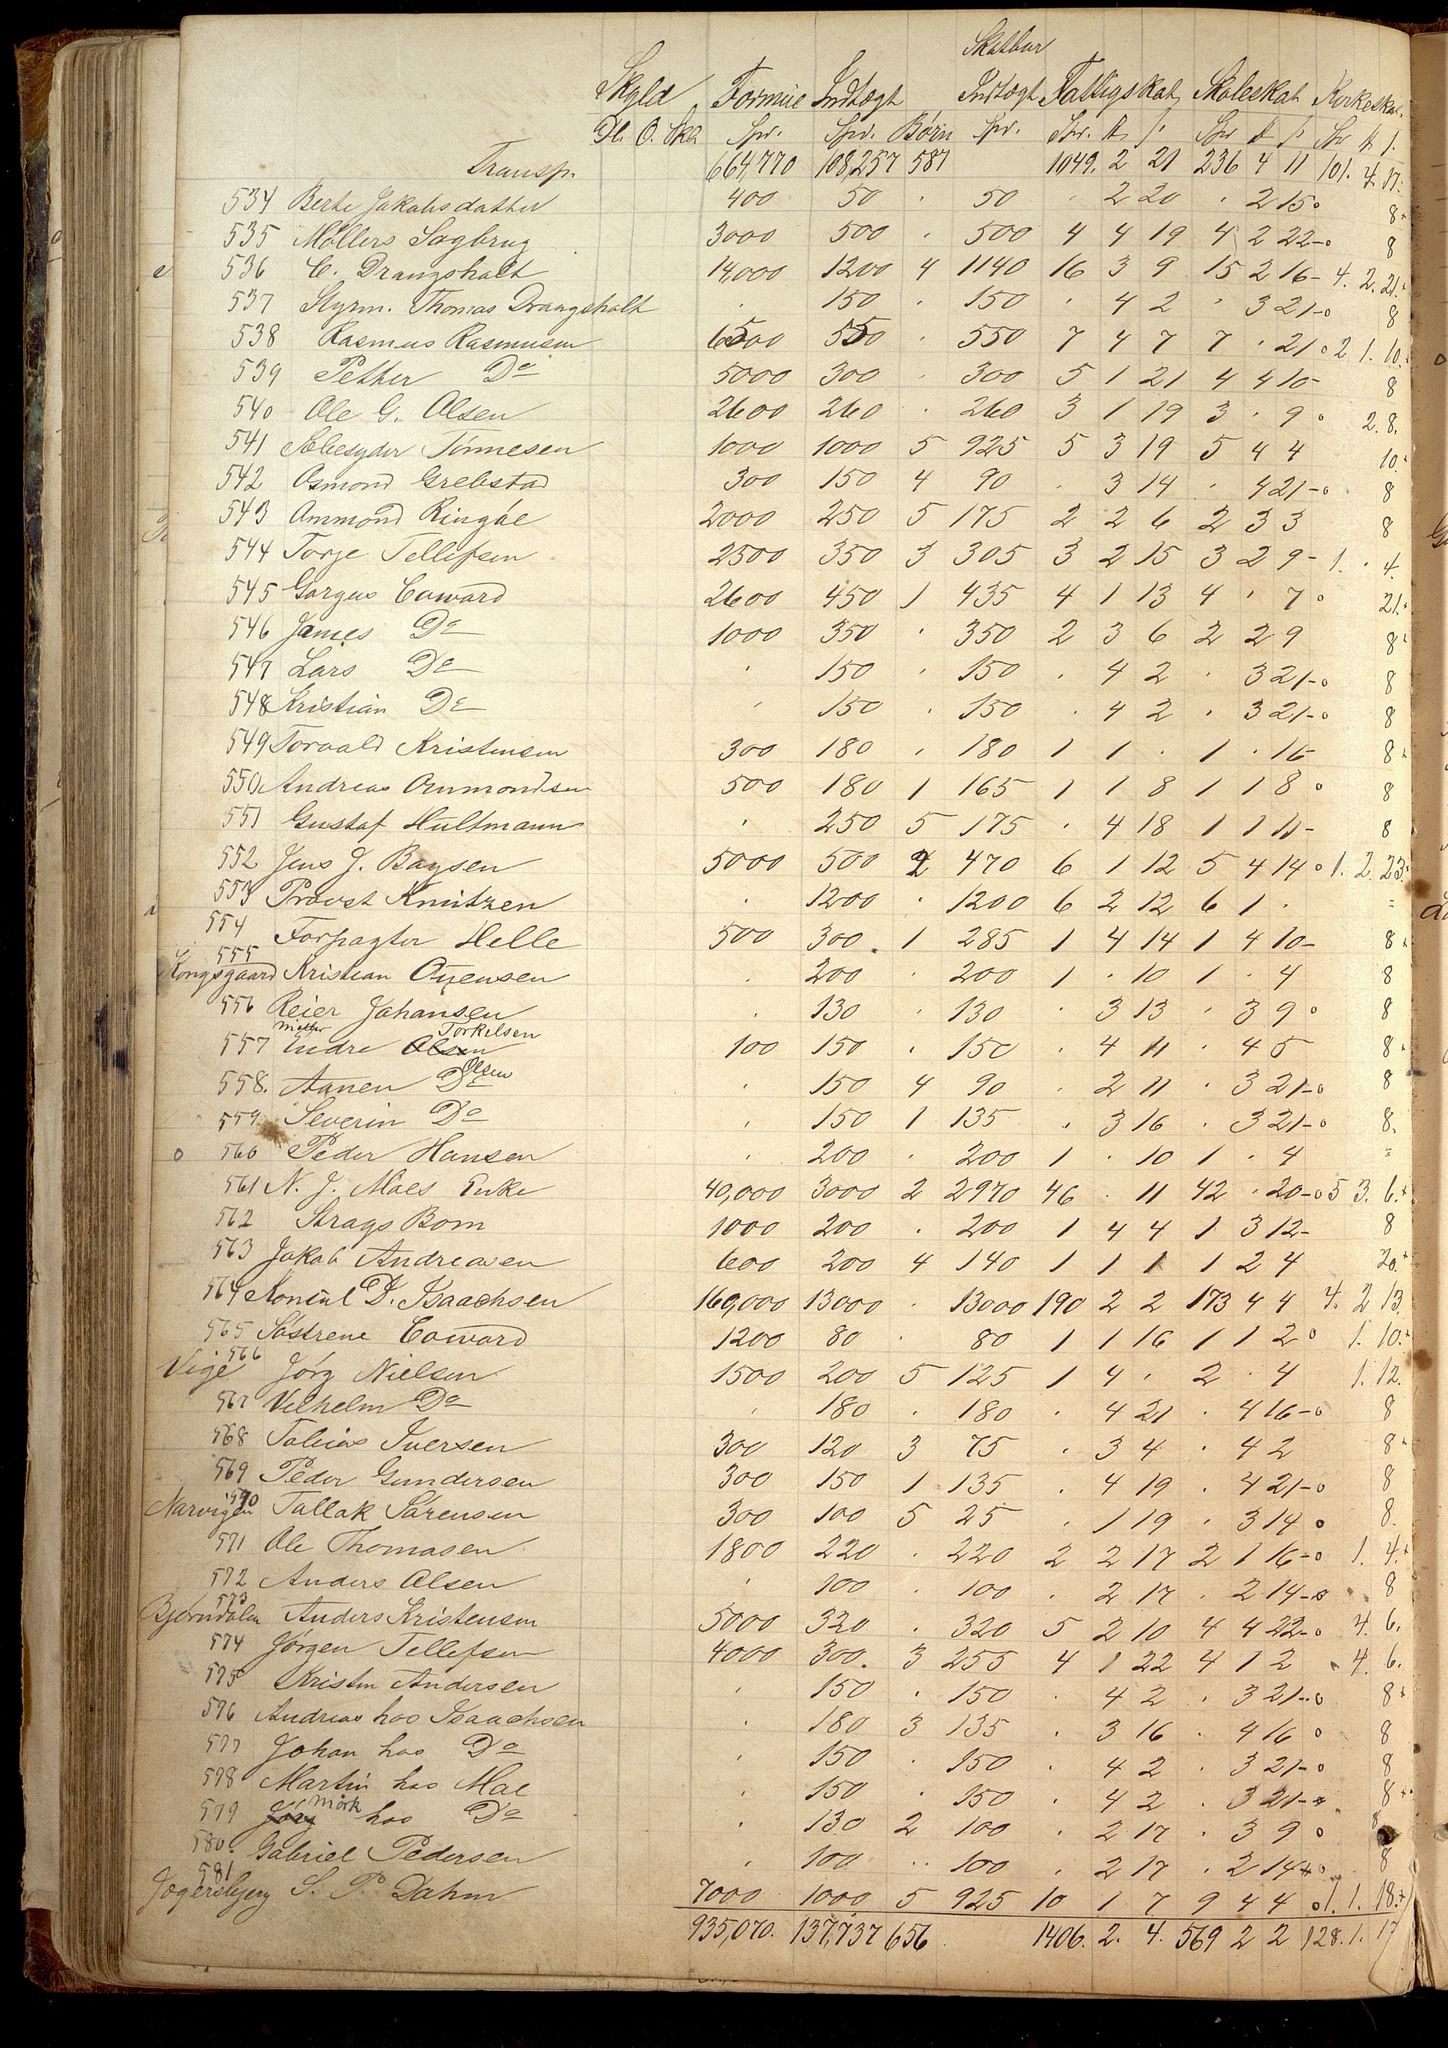 Skatbar
Skyld Formue Indtægt Indtægt Fattigskat Skoleskat Kirkeskat
Dl. O. Sk. Spr. Spr. Børn Spr. Spr. ß Spr
Transp. 664,770 108,257 587 1049. 2 21 236 4 11 101. 4. 17.
534 Berte Jakobsdatter 400 50 . 50 . 2 20 . 2 15 o 8
535 Møllers Sagbrug 3000 500 . 500 4 4 19 4 2 22 - o 8
536 C. Drangsholt 14,000 1200 4 1140 16 3 9 15 2 16 - 4. 2. 21.
537 Styrm. Thomas Drangsholt . 150 . 150 . 4 2 . 3 21 - o 8
538 Rasmus Rasmusen 6500 550 . 550 7 4 7 7 . 21 o 2 1. 10.
539 Petter Do 5000 300 . 300 5 1 21 4 4 10 - 8
540 Ole G. Olsen 2600 260 . 260 3 1 19 3 . 9 o 2. 8.
541 Tønnesen 1000 1000 5 925 5 3 19 5 4 4 10.
542 Osmond Grebstad 300 150 4 90 . 3 14 . 4 21 - o 8
543 Ammond Ringåe 2000 250 5 175 2 2 6 2 3 3 8
544 Torje Tellefsen 2500 350 3 305 3 2 15 3 2 9 - 1. . 4.
545 Gorgus Coward 2600 450 1 435 4 1 13 4 . 7 o 21.
546 James Do 1000 350 . 350 2 3 6 2 2 9 8
547 Lars Do . 150 . 150 . 4 2 . 3 21 - o 8
548 Kristian Do . 150 . 150 . 4 2 . 3 21 - o 8
549 Torvald Kristensen 300 180 . 180 1 1 . 1 . 16 8
550 Andreas Ommondsen 500 180 1 165 1 1 8 1 1 8 o 8
551 Gustaf Hultmann . 250 5 175 . 4 18 1 1 11 - 8
552 Jens J. Boysen 5000 500 2 470 6 1 12 5 4 14 o 1. 2. 23.
553 Provst Knutzen . 1200 . 1200 6 2 12 6 1 . =
554 Forpagter Helle 500 300 . 1 285 1 4 14 1 4 10 - 8
555
Kongsgaard Kristian Oyensen . 200 . 200 1 . 10 1 . 4 8
556 Reier Johansen . 130 . 130 . 3 13 . 3 9 o 8
Møller Torkelsen
557 Endre Olsen 100 150 . 150 . 4 11 . 4 5 8
Olsen
558. Aanen Do . 150 4 90 . 2 11 . 3 21 - o 8
559 Severin Do . 150 1 135 . 3 16 . 3 21 - o 8.
o 560 Peder Hansen . 200 . 200 1 . 10 1 . 4 =
561 N. J. Moes Enke 40,000 3000 2 2970 46 . 11 42 . 20 - o 5 3. 6.
562 Strags Bom 1000 200 . 200 1 4 4 1 3 12 - 8
563 Jakob Andreasen 600 200 4 140 1 1 1 1 2 4 20.
564 Konsul D. Isaachsen 160,000 13000 . 13000 190 2 2 173 4 4 4. 2 13.
565 Søstrene Coward 1200 80 . 80 1 1 16 1 1 2 o 1. 10.
566
Vige Jörg Nielsen 1500 200 5 125 1 4 . 2 . 4 1. 12.
567 Vilhelm Do . 180 . 180 . 4 21 . 4 16 - o 8
568 Tobias Iversen 300 120 3 75 . 3 4 . 4 2 8
569 Peder Gundersen 300 150 1 135 . 4 19 . 4 21 - o 8
570
Narvigen Tallak Sørensen 300 100 5 25 . 1 19 . 3 14 o 8.
571 Ole Thomasen 1800 220 . 220 2 2 17 2 1 16 - o 1. 4.
572 Anders Olsen . 100 . 100 . 2 17 . 2 14 - o 8
573
Bjørndalen Anders Kristensen 5000 320 . 320 5 2 10 4 4 22 - o 4. 6.
574 Jørgen Tellefsen 4000 300. 3 255 4 1 22 4 1 2 4. 6.
575 Kristen Andersen . 150 . 150 . 4 2 . 3 21 - o 8
576 Andreas hos Isaachsen . 180 3 135 . 3 16 . 4 16 o 8
577 Johan hos Do . 150 . 150 . 4 2 . 3 21 - o 8
578 Martin hos Moe . 150 . 150 . 4 2 . 3 21 - 8
Mørk
579 Jörg hos Do . 130 2 100 . 2 17 . 3 9 o 8
580. Gabriel Pedersen . 100 . 100 . 2 17 . 2 14 o 8
581
Jegersbjerg S. P. Dahm 7000 1000 5 925 10 1 7 9 4 4 o 1. 1. 18.
935,070. 137,737 656 1406. 2. 4. 569 2 2 128. 1. 17